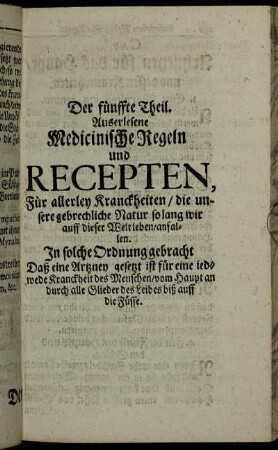 Der fünffte Theil.
Auserlesene
Medicinische Regeln
und
RECEPTEN,
Für allerley Kranckheiten / die un-
sere gebrechliche Natur so lang wir
auff dieser Welt leben / anfal-
len.
In solche Ordnung gebracht
Daß eine Artzney gesetzt ist für eine ied-
wede Kranckheit des Menschen / vom Haupt an
durch alle Glieder des Leibes biß auff
die Füsse.